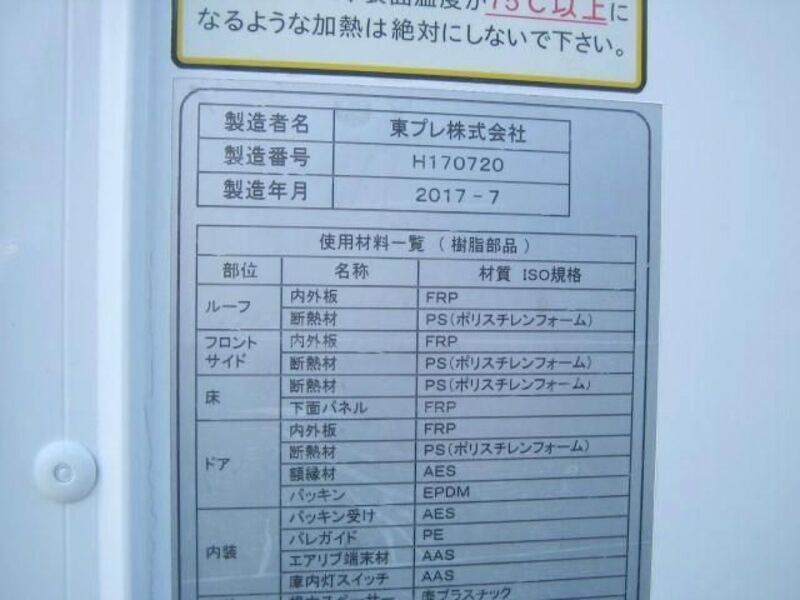 表面温度が75℃以上に
なるような加熱は絶対にしないで下さい。
製造者名 東プレ株式会社
製造番号 H170720
製造年月 2017-7
使用材料一覧（樹脂部品）
部位 名称 材質 ISO規格
ルーフ 内外板 FRP
断熱材 PS(ポリスチレンフォーム)
フロント サイド 内外板 FRP
断熱材 PS(ポリスチレンフォーム)
床 断熱材 PS(ポリスチレンフォーム)
下面パネル FRP
ドア 内外板 FRP
断熱材 PS(ポリスチレンフォーム)
額縁材 AES
パッキン EPDM
内装 パッキン受け AES
パレガイド PE
エアリブ端末材 AAS
庫内灯スイッチ AAS
スペーサー 廃プラスチック